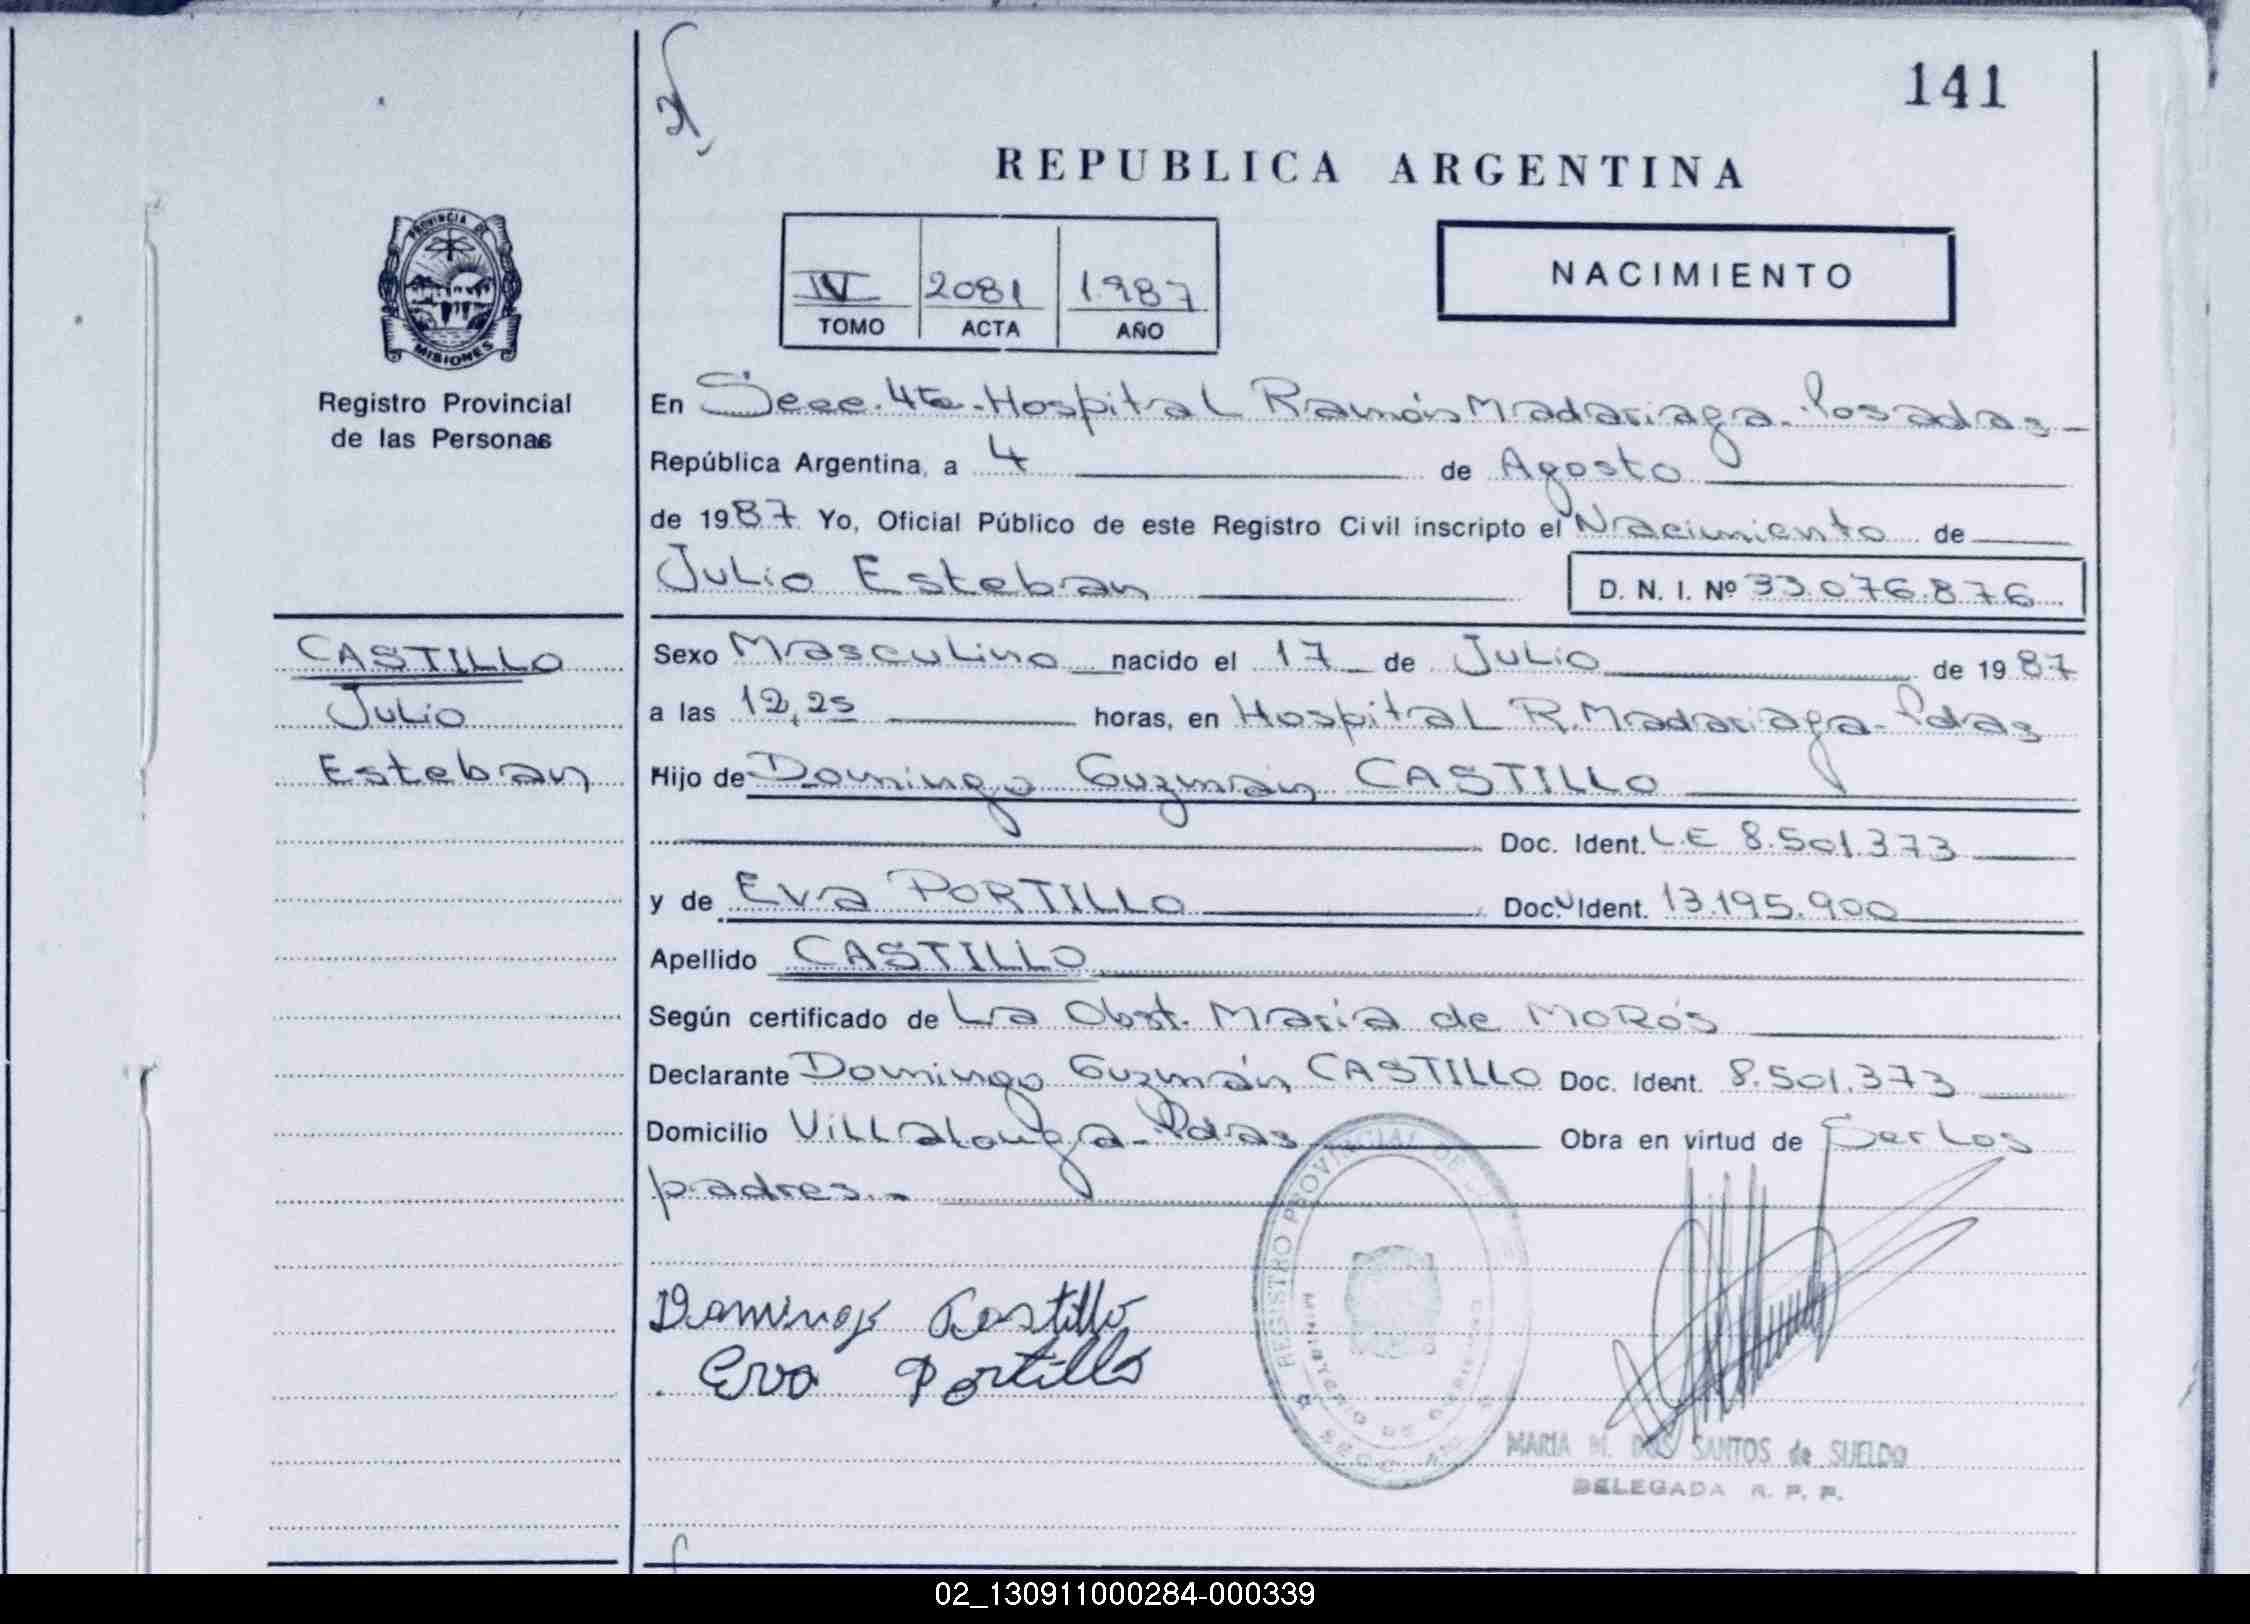 141
REPUBLICA ARGENTINA
PROVINCIA DE
MISIONES
Registro Provincial
de las Personas
IV 2081 1987
TOMO ACTA AÑO
NACIMIENTO
En Secc. 4ta - Hospital Ramón Madariaga - Posadas -
República Argentina, a 4 de Agosto
de 1987 Yo, Oficial Público de este Registro Civil inscripto el Nacimiento de
Julio Esteban D. N. I. Nº 33.076.876
CASTILLO
Julio
Esteban
Sexo Masculino nacido el 17 de Julio de 1987
a las 12,25 horas, en Hospital R. Madariaga - Pdas
Hijo de Domingo Guzmán CASTILLO
Doc. Ident. L.E 8.501.373
y de Eva PORTILLO Doc. Ident. 13.195.900
Apellido CASTILLO
Según certificado de La Obst. Maria de MORós
Declarante Domingo Guzmán CASTILLO Doc. Ident. 8.501.373
Domicilio Villalonga - Pdas Obra en virtud de Ser los
padres. -
REGISTRO PROVINCIAL DE
MINISTERIO DE GOBIERNO
Domingo Castillo
Eva Portillo
MARIA M. DOS SANTOS de SUELDO
DELEGADA R. P. P.
02_130911000284-000339